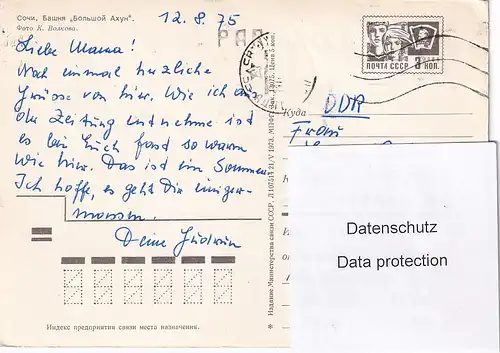 Сочи. Башня „Большой Ахун“.
Фото К. Волкова.
12.8.75
Liebe Mama!
Noch einmal herzliche
Grüsse von hier. Wie ich aus
der Zeitung entnehme ist
es bei Euch fast so warm
wie hier. Das ist ein Sommer.
Ich hoffe, es geht Dir einiger-
massen.
Deine
Индекс предприятия связи места назначения.
* Издание Министерства связи СССР. Л 107514 21/V 1973. МПФГ Зак. Цена 5 коп.
ПОЧТА СССР
Куда
DDR
Frau
Datenschutz
Data protection